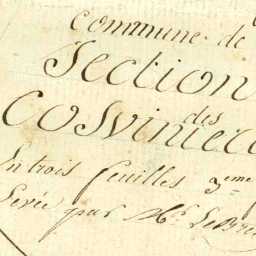 Commune de
Section
des
Cosvinière
En trois feuilles 3eme
Levée par Mr. LeBru